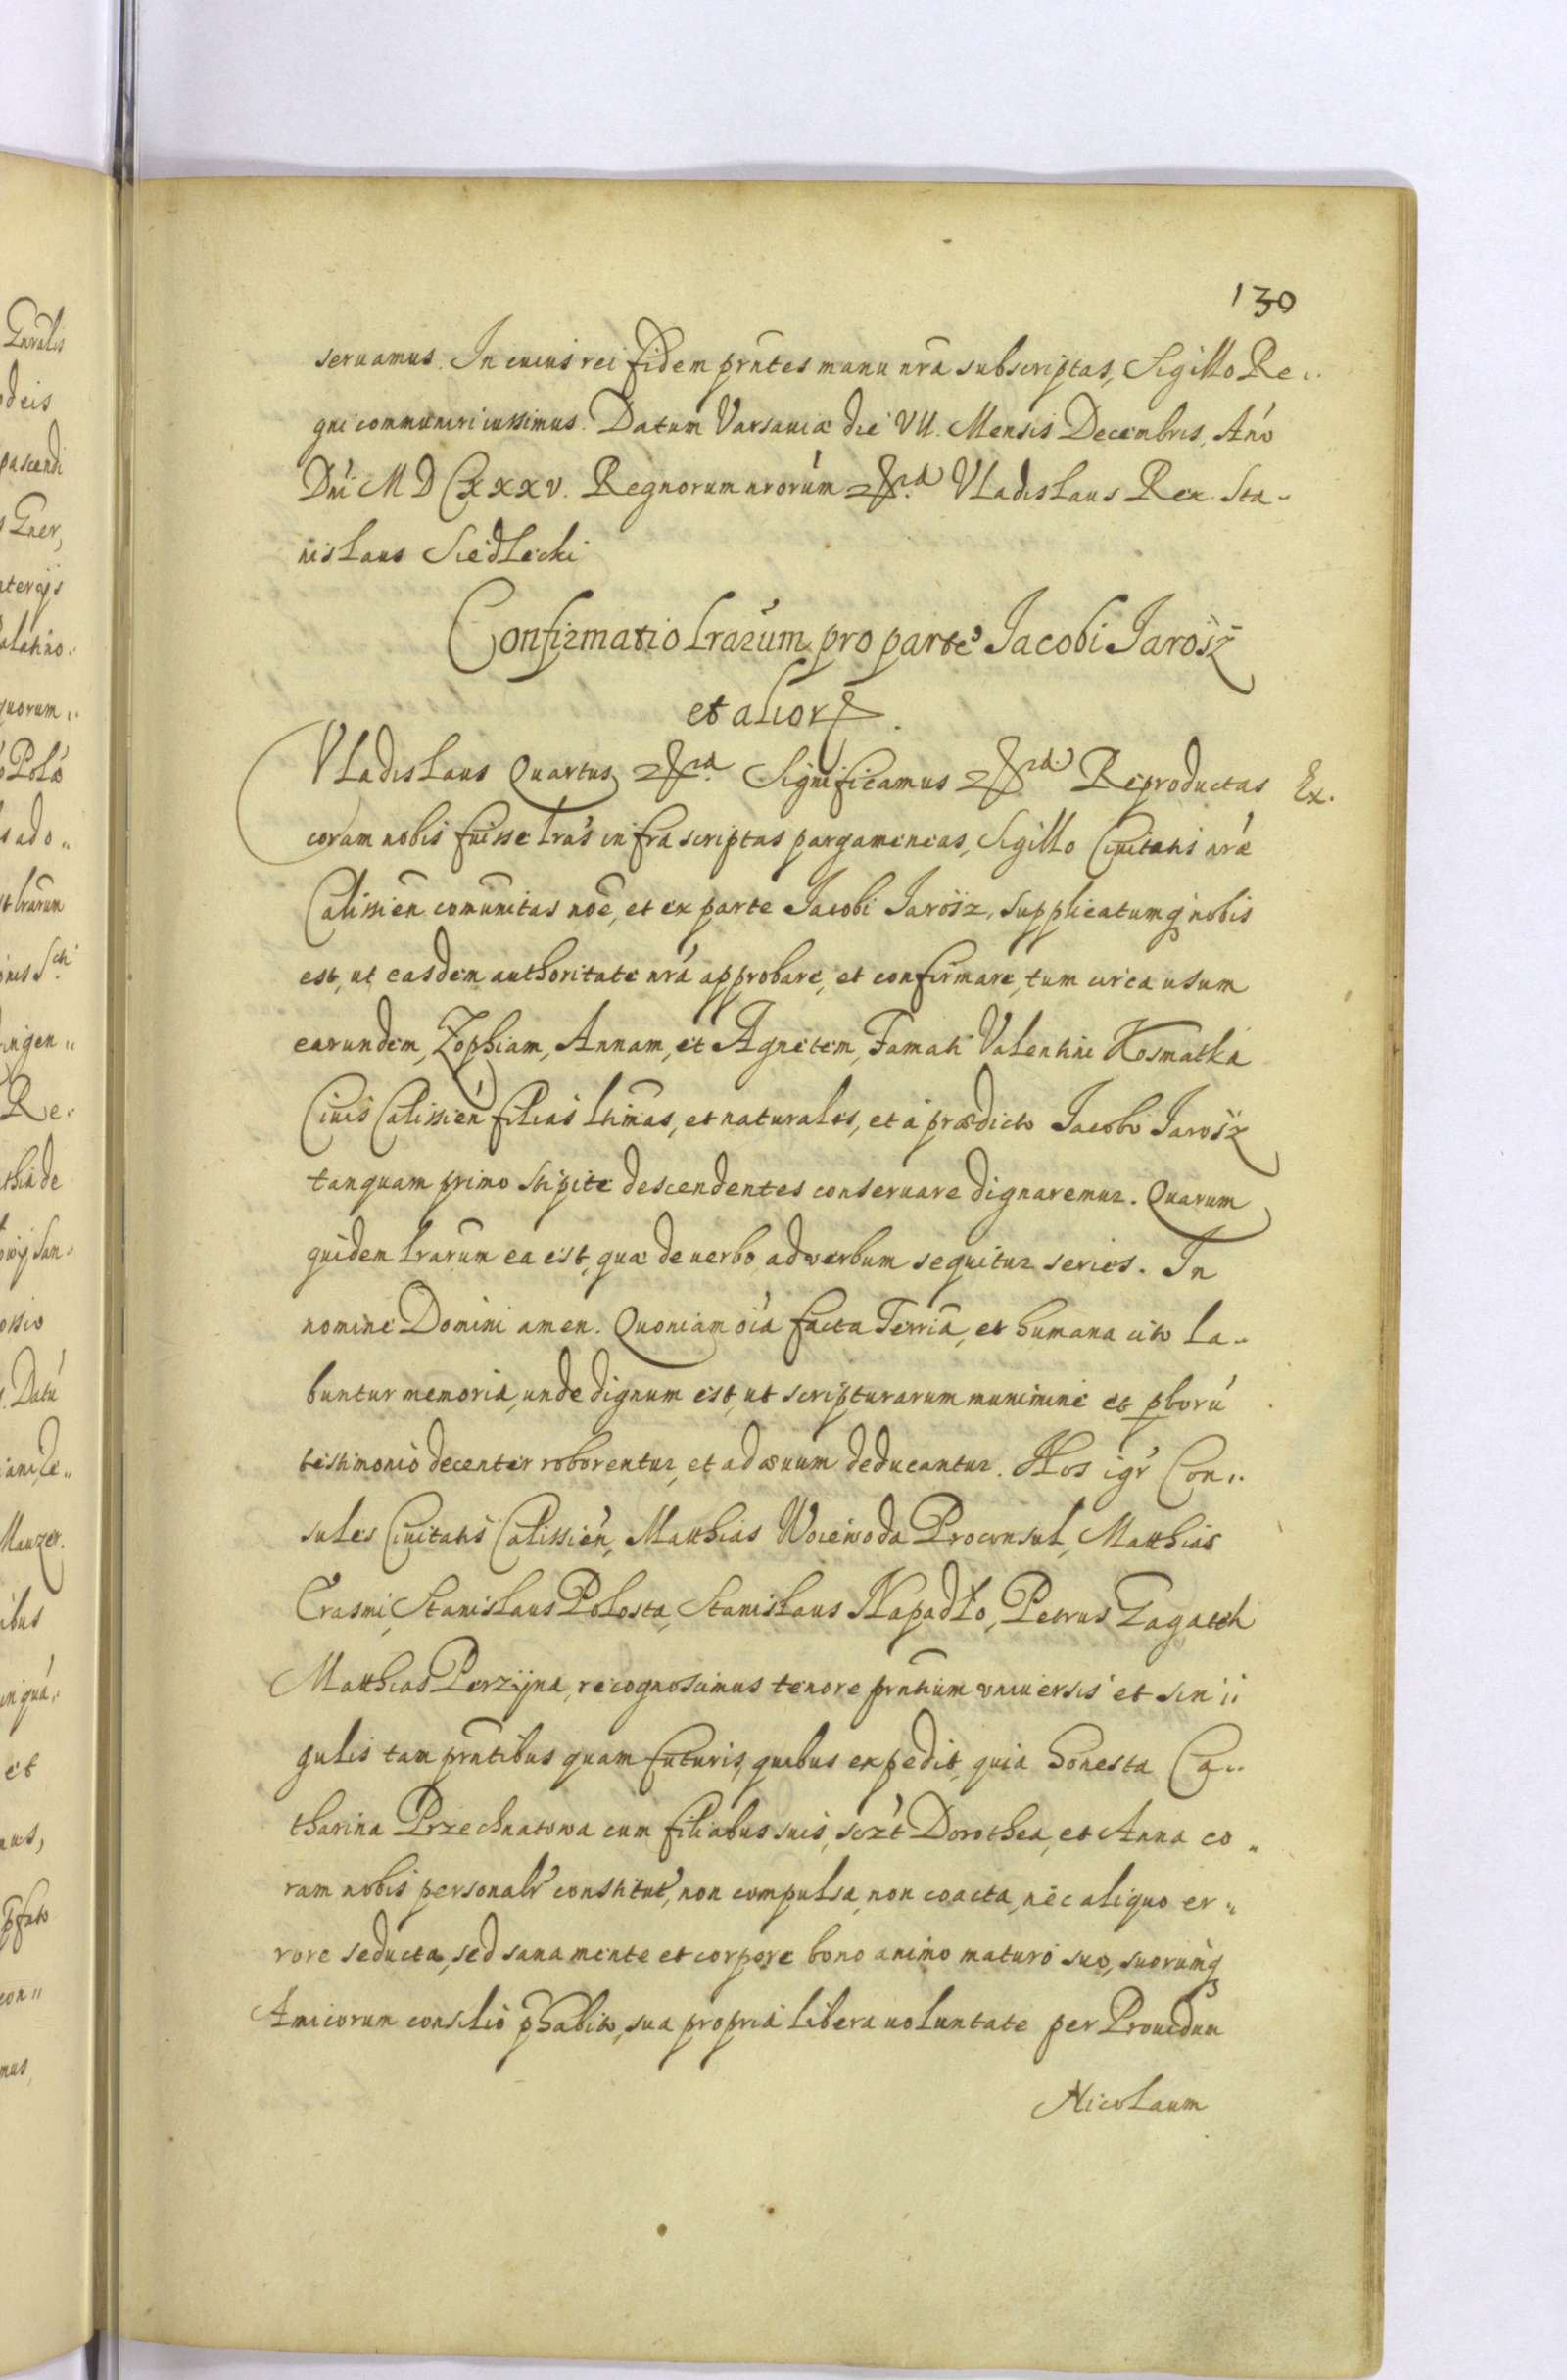 130
seruamus. In cuius rei fidem prntes manu nrã subscriptas, Sigillo Re„
gni communiri iussimus. Datum Varsauiæ die VII. Mensis Decembris, Año
Dni M D CXXXV. Regnorum nrorum &ra Vladislaus Rex Sta„
nislaus Siedlecki
Confirmatio lrarum pro parte Jacobi Jarosz
et alior.
Vladislaus Quartus &ra Significamus &ra Reproductas Ex.
coram nobis fuisse lras infra scriptas pargameneas, Sigillo Ciuitatis nræ
Calissien comunitas noē, et ex parte Jacobi Jarosz, Supplicatumq nobis
est, ut easdem authoritate nrã approbare, et confirmare, tum circa usum
earundem, Zophiam, Annam, et Agnetem, Famati Valentini Kosmatka
Ciuis Calissień filias ltimas, et naturales, et à prædicto Jacobo Jarosz
tanquam primo stipite descendentes conseruare dignaremur. Quarum
quidem lrarum ea est, quæ de uerbo ad verbum sequitur series. In
nomine Domini amen. Quoniam oia facta Terria, et humana cito la„
buntur memoria, unde dignum est, ut scripturarum munimine et pborū
testimonio decenter roborentur, et ad æuum deducantur. Nos igr Con„
sules Ciuitatis Calissień, Matthias Woiewoda Proconsul, Matthias
Erasmi, Stanislaus Polosta, Stanislaus Napadło, Petrus Zagatch
Matthias Perzyna, recognoscimus tenore prntium vniuersis et sin„
gulis tam prntibus quam futuris, quibus expedit, quia honesta Ca„
tharina Przechnatowa cum filiabus suis, sczt Dorothea, et Anna co„
ram nobis personalr constitut, non compulsa, non coacta, nec aliquo er„
rore seducta, sed sana mente et corpore bono animo maturo suo, suorumq
Amicorum consilio phabito, sua propria libera uoluntate per Prouidum
Nicolaum